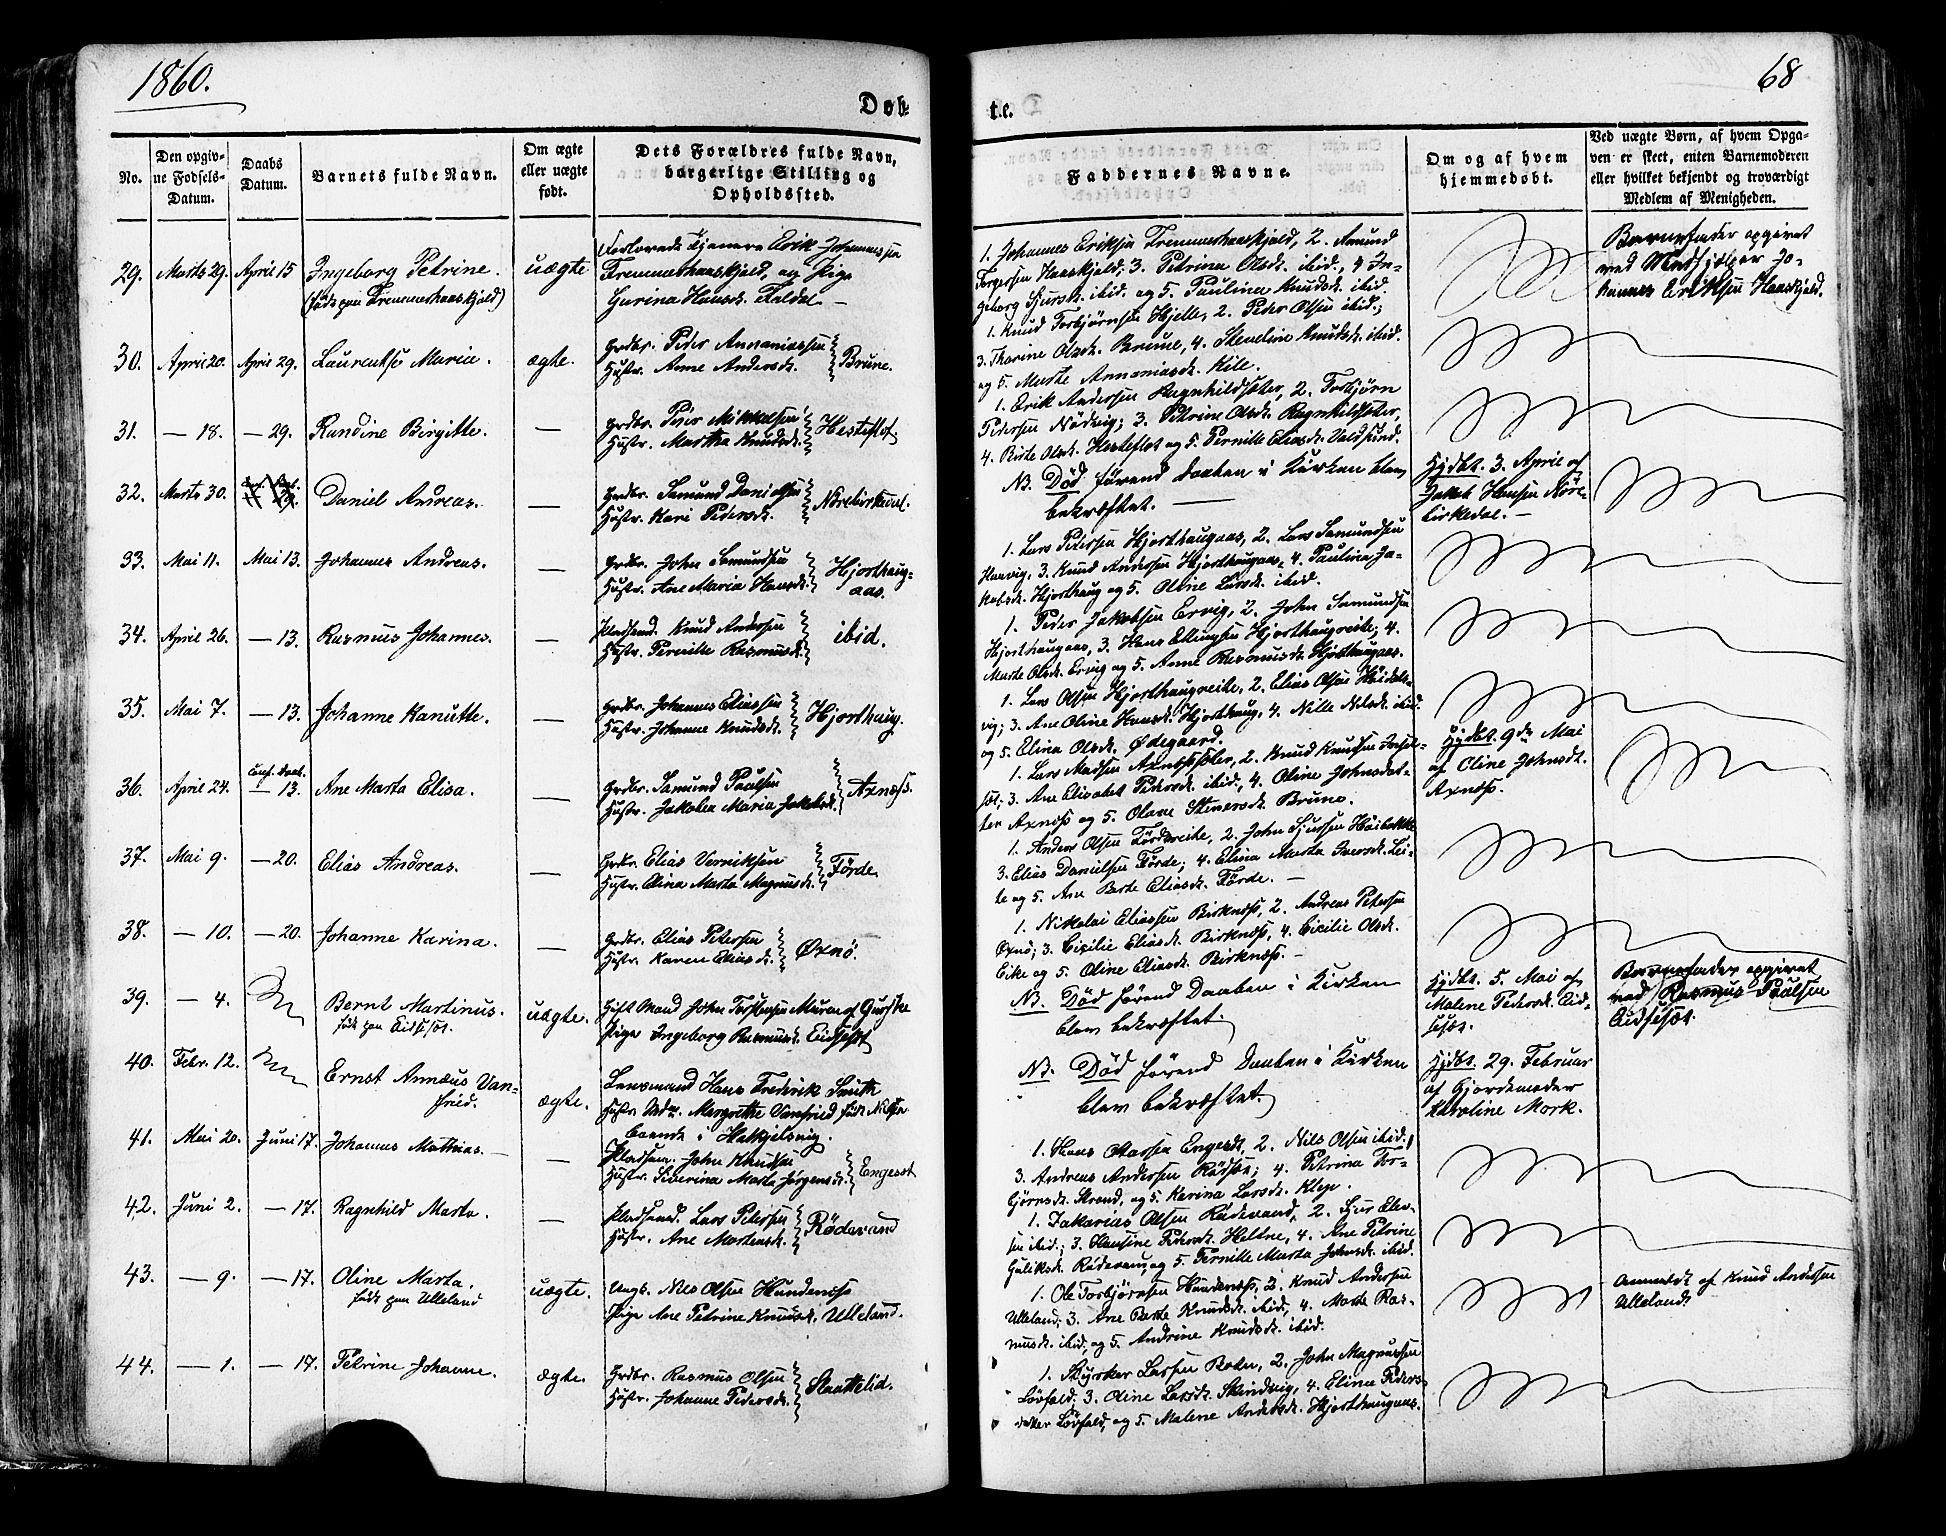 1860.
68
Døb-
te.
No.
Den opgiv-
ne Fødsels-
Datum.
Daabs
Datum.
Barnets fulde Navn.
Om ægte
eller uægte
født.
Dets Forældres fulde Navn,
borgerlige Stilling og
Opholdssted.
Faddernes Navne.
Om og af hvem
hjemmedøbt.
Ved uægte Børn, af hvem Opga-
ven er skeet, enten Barnemoderen
eller hvilket bekjendt og troværdigt
Medlem af Menigheden.
29. Marts 29. April 15 Ingeborg Petrine. uægte
Erik Johannessen
og Pige
Gurina Hansd. Faldal –
30. April 20. April 29. Laurentse Maria. ægte.
Grdbr. Peder Annaniassen
Hustr. Anne Andersd. Brune.
1. Knud Torbjørnsen Hjelle, 2. Peder Olsen ibid.;
3. Thorine Olsd. Brune, 4. Steneline Knudsd. ibid.
og 5. Marte Annaniasd. Kile.
31. — 18. — 29. Randine Birgitte. —
Grdbr. Peder Mikkelsen
Hustr. Martha Knudsd. Hesteflot
1. Erik Andersen Ragnhildsæter, 2. Torbjørn
Pedersen Nødvig; 3. Petrine Olsd. Ragnhildsæter,
4. Birte Olsd. Hesteflot og 5. Pernille Eliasd.
32. Marts 30. Daniel Andreas. —
Grdbr. Samund Danielsen
Hustr. Kari Pedersd. Nørebirkedal.
NB. Død førend Daaben i Kirken blev
bekræftet. —
Hjdbt. 3. April af
Jakob Hansen Nøre-
birkedal. –
33. Mai 11. Mai 13. Johannes Andreas. —
Grdbr. John Samundsen
Hustr. Ane Maria Hansd. Hjorthaug-
aas.
1. Lars Petersen Hjorthaugaas, 2. Lars Samundsen
3. Knud Andersen Hjorthaugaas, 4. Paulina Ja-
kobsd. Hjorthaug og 5. Oline Larsd. ibid.
34. April 26. — 13. Rasmus Johannes. —
Pladsmd. Knud Andersen
Hustr. Pernille Rasmusd. ibid.
1. Peder Jakobsen Ervig, 2. John Samundsen
Hjorthaugaas, 3. Hans Ellingsen Hjorthaugreite, 4.
Marte Olsd. Ervig og 5. Anne Rasmusd. Hjorthaugaas.
35. Mai 7. — 13. Johanne Kanutte. —
Grdbr. Johannes Eliassen
Hustr. Johanne Knudsd. Hjorthaug.
1. Lars Olsen Hjorthaugreite, 2. Elias Olsen
vig; 3. Ane Oline Hansd. Hjorthaug, 4. Nille Nilsd. ibid.
og 5. Elina Olsd. Ødegaard.
36. April 24. Conf. Daab.
— 13. Ane Marta Elisa. —
Grdbr. Samund Paulsen
Hustr. Jakobea Maria Jakobsd. Axnæss.
1. Lars Madsen Axnæssæter, 2. Knud Knudsen
3. Ane Elisabet Pedersd. ibid., 4. Oline Johnsdat-
ter Axnæss og 5. Olave Steнersd. Brune.
Hjdbt. 9de Mai
af Oline Johnsd.
Axnæss.
37. Mai 9. — 20. Elias Andreas. —
Grdbr. Elias Verniksen
Hustr. Elina Marta Magnusd. Førde.
1. Anders Olsen Førdsreite, 2. John Sjursen Høibakke
3. Elias Danielsen Førde; 4. Elina Marta Iversd. Lei-
te og 5. Ane Berte Eliasd. Førde. –
38. — 10. — 20. Johanne Karina. —
Grdbr. Elias Petersen
Hustr. Karen Eliasd. Oxnø.
1. Nikolai Eliassen Birknæss, 2. Andreas Petersen
Oxnø; 3. Cicilie Eliasd. Birknæss, 4. Cicilie Olsd.
Eike og 5. Oline Eliasd. Birknæss. –
39. — 4. Bernt Martinus.
født paa Eidsesæt. uægte.
Gift Mand John Torstensen Muren af Gurske
Pige Ingeborg Rasmusd. Eidsesæt
NB. Død førend Daaben i Kirken
blev bekræftet.
Hjdbt. 5. Mai af
Malene Pedersd. Eid-
sesæt.
Barnefader opgivet
ved Rasmus Paalsen
Eidsesæt.
40. Febr. 12. Ernst Annæus Van-
fried. ægte.
Lensmand Hans Frederik Smith
Hustr. Mdm. Margrethe Vanfried født
boende i Hakjelsvig.
NB. Død førend Daaben i Kirken
blev bekræftet.
Hjdbt. 29. Februar
af Gjordemoder
Karoline Mork.
41. Mai 20. Juni 17. Johannes Mathias. — —
Pladsm. John Knudsen
Hustr. Severina Marta Jørgensd. Engeset
1. Hans Olassen Engeset, 2. Nils Olsen ibid.;
3. Andreas Andersen Rødsæt; 4. Petrina Tor-
bjørnsd. Strand, og 5. Karina Larsd. Klep.
42. Juni 2. — 17. Ragnhild Marta. —
Pladsmd. Lars Petersen
Hustr. Ane Martensd. Rødevand
1. Zakarias Olsen Rødevand, 2. Sjur
sen ibid.; 3. Olausine Pedersd. Heltne, 4. Ane Petrine
Guliksd. Rødevand, og 5. Pernille Marta Johnsd. ibid.
43. — 9. — 17. Oline Marta.
født paa Ulleland uægte.
Ungk. Nils Olsen Hundenæss
Pige Ane Petrine Knudsd. Ulleland.
1. Ole Torbjørnsen Hundenæss, 2. Knud Andersen
Ulleland; 3. Ane Berte Knudsd. ibid; 4. Marte Ras-
musd. ibid, og 5. Andrine Knudsd. ibid.
Anmeldt af Knud Andersen
Ulleland.
44. — 1. — 17. Petrine Johanne. ægte.
Grdbr. Rasmus Olsen
Hustr. Johanne Pedersd. Slaattelid.
1. Styrker Larsen 2. John Magnussen
Løvfald; 3. Oline Larsd. 4. Elina Peders-
datter Løvfald, og 5. Malene Andersd. Hjorthaugaas.